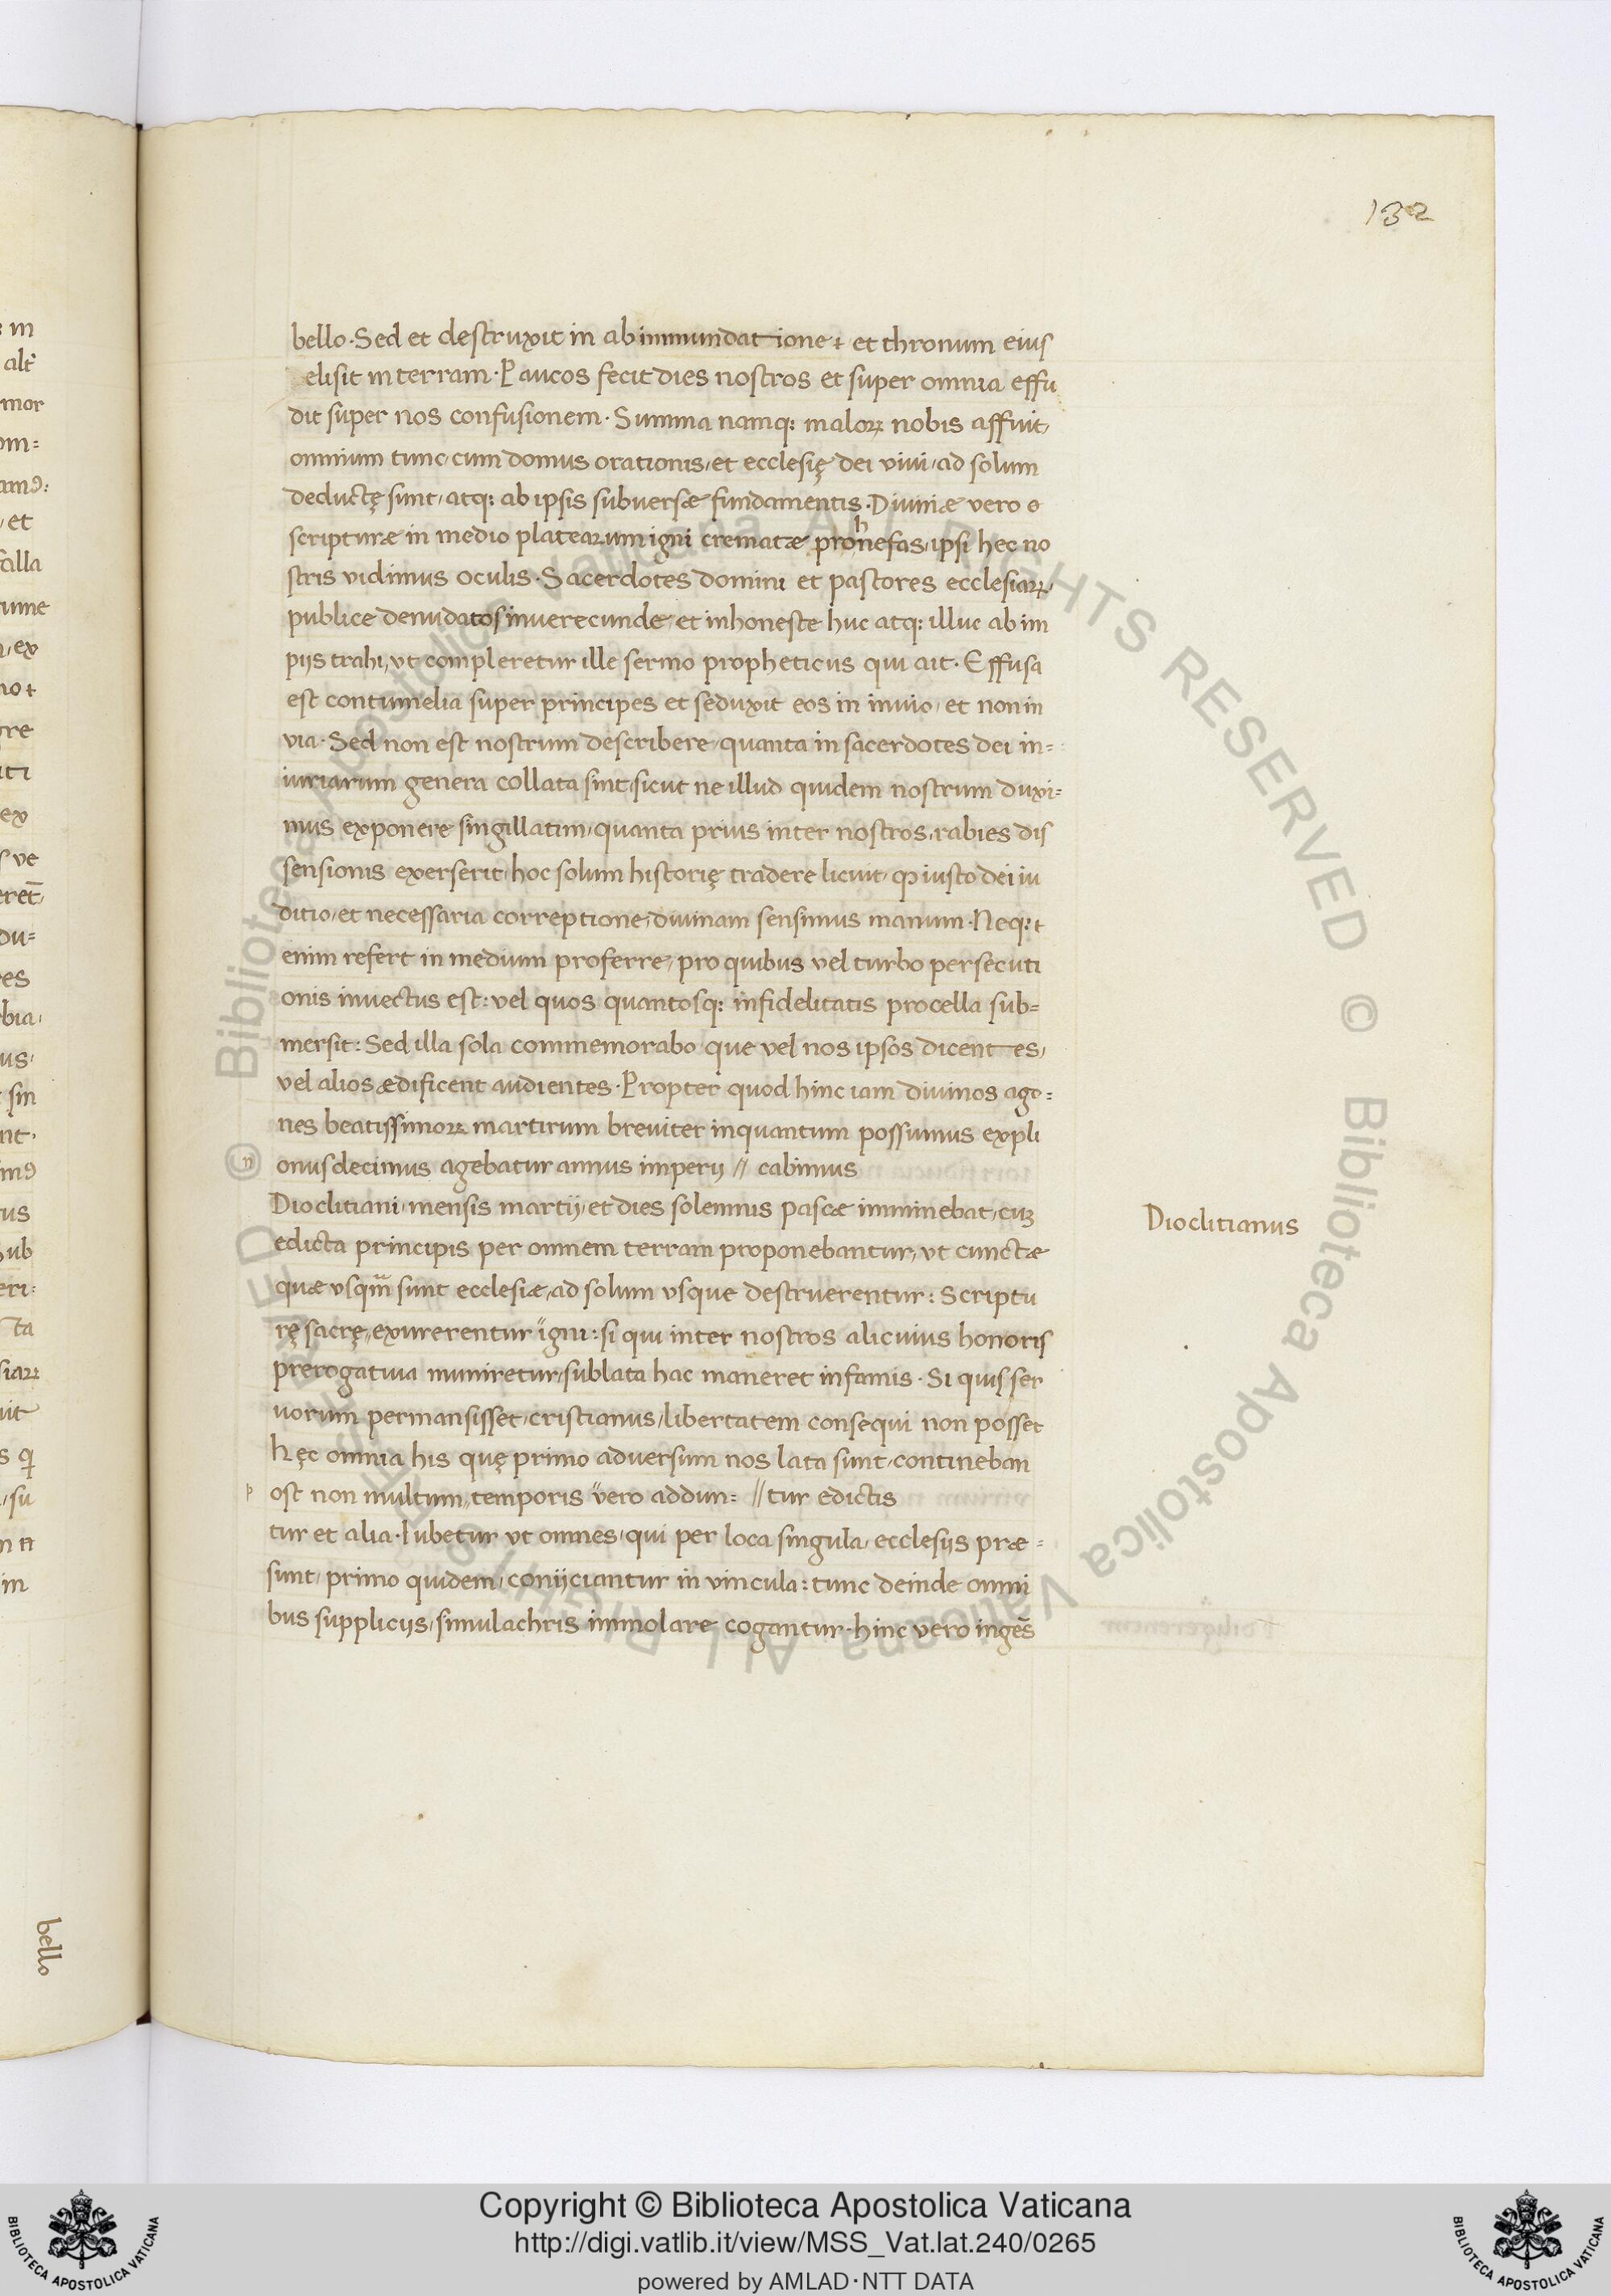 132
bello · Sed et destruxit in ab immundatione ꝉ et thronum eius
elisit in terram · Paucos fecit dies nostros et super omnia effu
dit super nos confusionem · Summa namq; maloꝝ nobis affuit,
omnium tunc, cum domus orationis, et ecclesię dei vivi, ad solum
deductę sunt, atq; ab ipsis subversæ fundamentis · Divinæ vero
scripturæ in medio platearum igni crematæ prohnefas, ipsi hec no
stris vidimus oculis · Sacerdotes domini et pastores ecclesiaꝝ,
publice denudatos inverecunde, et inhoneste huc atq; illuc ab im
pijs trahi, vt compleretur ille sermo propheticus qui ait · Effusa
est contumelia super principes et seduxit eos in invio, et non in
via · Sed non est nostrum describere, quanta in sacerdotes dei in=
iuriarum genera collata sint, sicut ne illud quidem nostrum duxi=
mus exponere singillatim, quanta prius inter nostros, rabies dis
sensionis exerserit, hoc solum historię tradere licuit, ꝙ iusto dei iu
ditio, et necessaria correptione, divinam sensimus manum · Neq; ꝉ
enim refert in medium proferre, pro quibus vel turbo persecuti
onis invectus est : vel quos quantosq; infidelitatis procella sub=
mersit : Sed illa sola commemorabo que vel nos ipsos dicentes,
vel alios ædificent audientes · Propter quod hinc iam divinos ago=
nes beatissimoꝝ martirum breviter inquantum possumus expli
n onusdecimus agebatur annus imperij // cabimus
Dioclitiani, mensis martij, et dies solemnis pascæ imminebat, cuꝫ
Dioclitianus
edicta principis per omnem terram proponebantur, vt cunctæ
quæ vsqm̄ sunt ecclesiæ, ad solum vsque destruerentur : Scriptu
rę sacrę, exurerentur igni : si qui inter nostros alicuius honoris
prerogativa muniretur, sublata hac maneret infamis · Si quis ser
vorum permansisset, cristianus, libertatem consequi non posset
hęc omnia his quę primo adversum nos lata sunt, contineban
p ost non multum, temporis vero addun= // tur edictis
tur et alia · Iubetur vt omnes, qui per loca singula, ecclesijs præ=
sunt, primo quidem, conijciantur in vincula : tunc deinde omni
bus supplicijs, simulachris immolare cogantur · hinc vero ingēs
: m
mor
, et
bello
Copyright © Biblioteca Apostolica Vaticana
http://digi.vatlib.it/view/MSS_Vat.lat.240/0265
powered by AMLAD · NTT DATA
BIBLIOTECA APOSTOLICA VATICANA
BIBLIOTECA APOSTOLICA VATICANA
© Biblioteca Apostolica Vaticana ALL RIGHTS RESERVED © Biblioteca Apostolica Vaticana ALL RIGHTS RESERVED